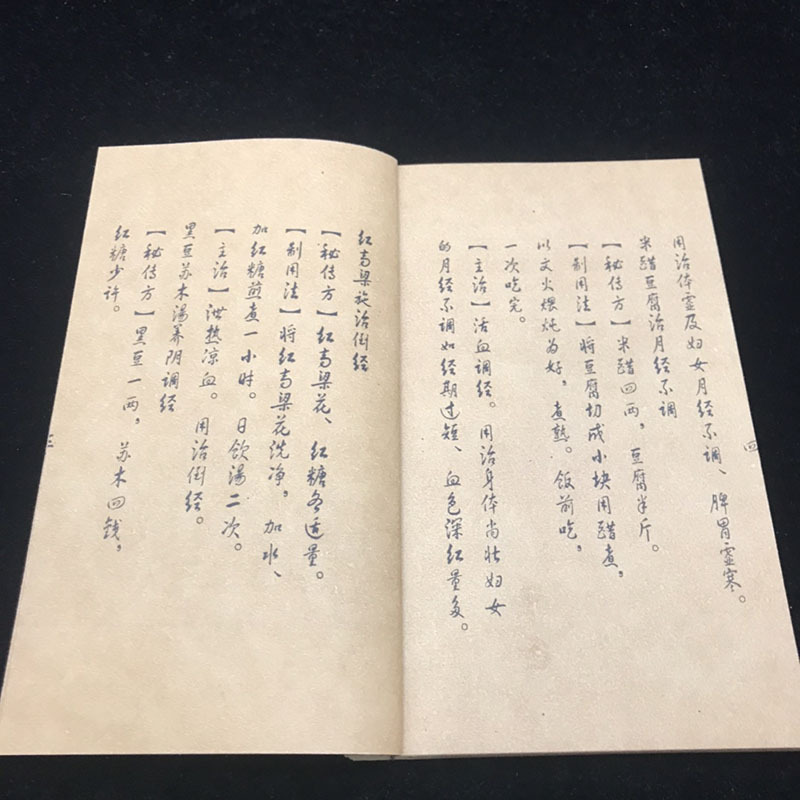 四
用治体虚及妇女月经不调、脾胃虚寒。
米醋豆腐治月经不调
【秘传方】米醋四两,豆腐半斤。
【制用法】将豆腐切成小块用醋煮,
以文火煨炖为好,煮熟。饭前吃,
一次吃完。
【主治】活血调经。用治身体尚壮妇女
的月经不调如经期过短、血色深红量多。
红高梁施治倒经
【秘传方】红高梁花、红糖各适量。
【制用法】将红高梁花洗净。加水、
加红糖煎煮一小时。日饮汤二次。
【主治】泄热凉血。用治倒经。
黑豆苏木汤养阴调经
【秘传方】黑豆一两,苏木四钱,
红糖少许。
三